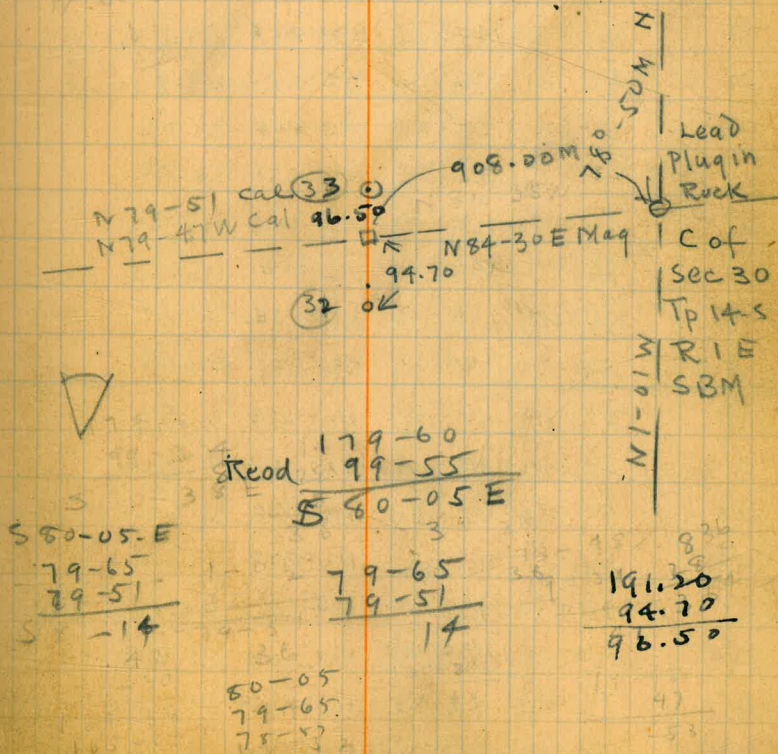 Lead
Plug in
Rock
C of
Sec 30
Tp 14-S
R 1 E
SBM
908.00M
N 79-51 cal 33
N79-47W Cal 96.50
N84-30E Mag
94.70
32
N1-01W
179-60
Read 99-55
S 80-05 E
3
S 80-05-E
79-65
79-51
-14
79-65
79-51
14
191.20
94.70
96.50
80-05
79-65
47